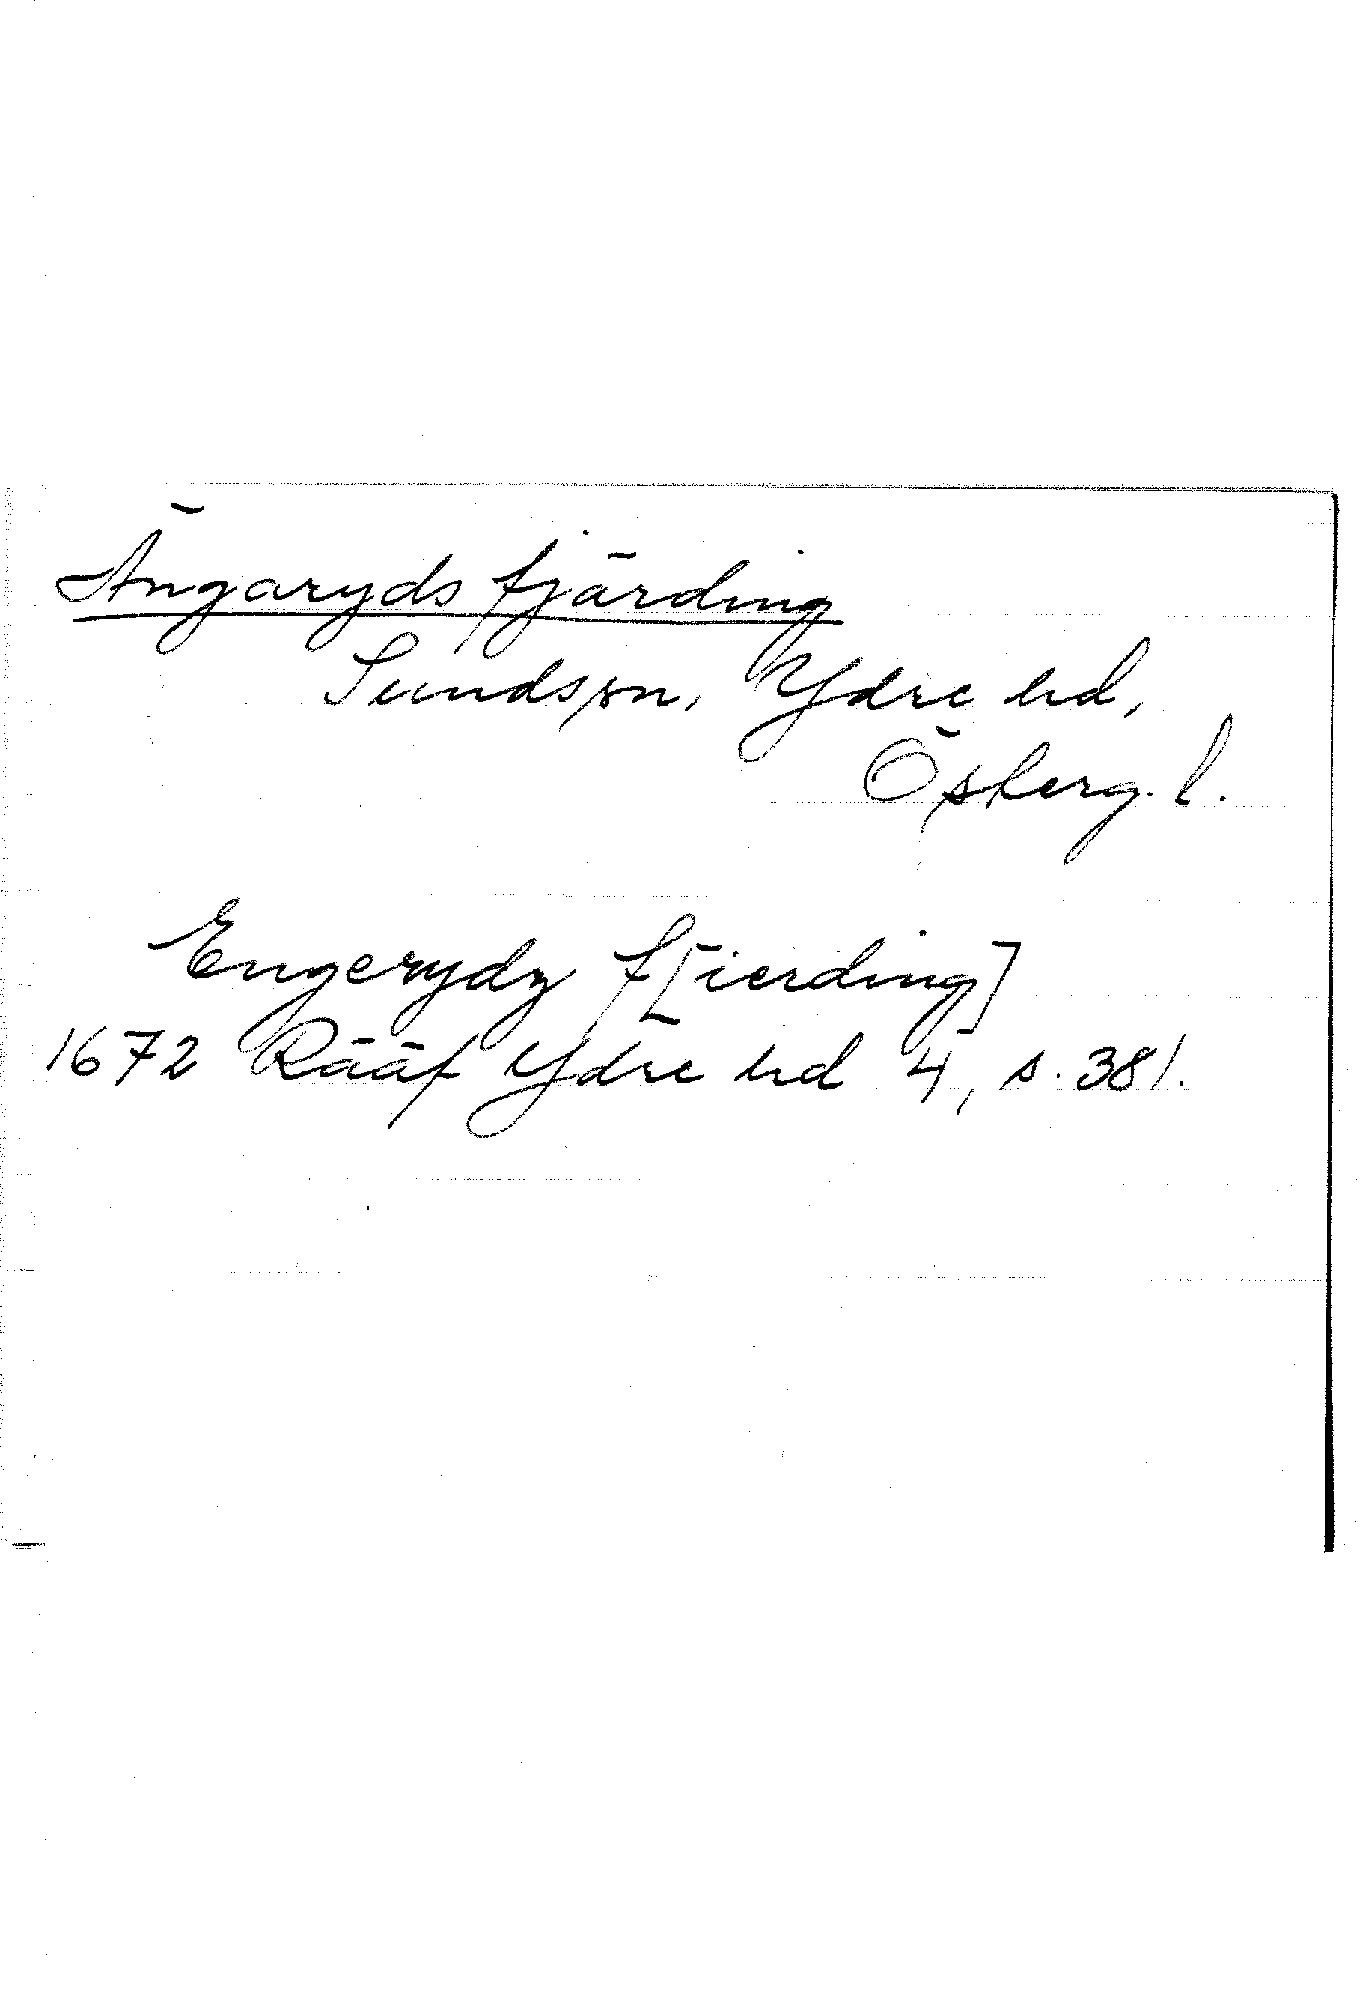 Ängaryds fjärding
Sunds sn, Ydre hd,
Österg. l.
Engerydz f[ierding]
1672 Rääf Ydre hd 4, s. 381.